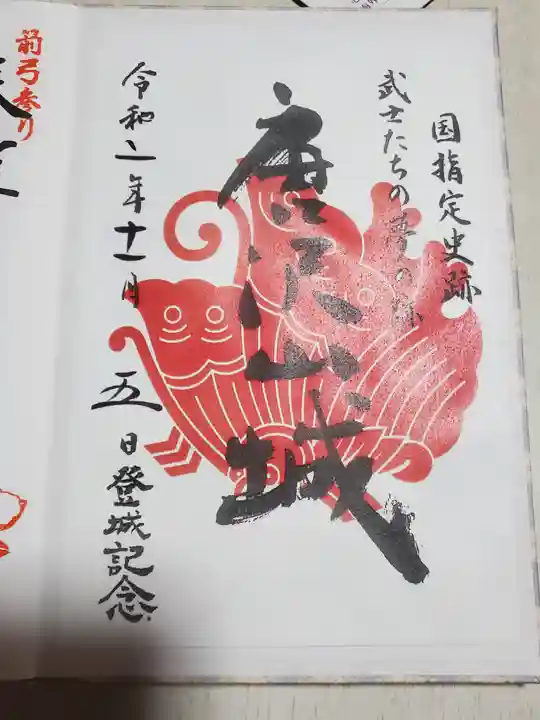 国指定史跡
武士たちの夢の跡
唐沢山城
令和二年十一月五日登城記念
前弓参り